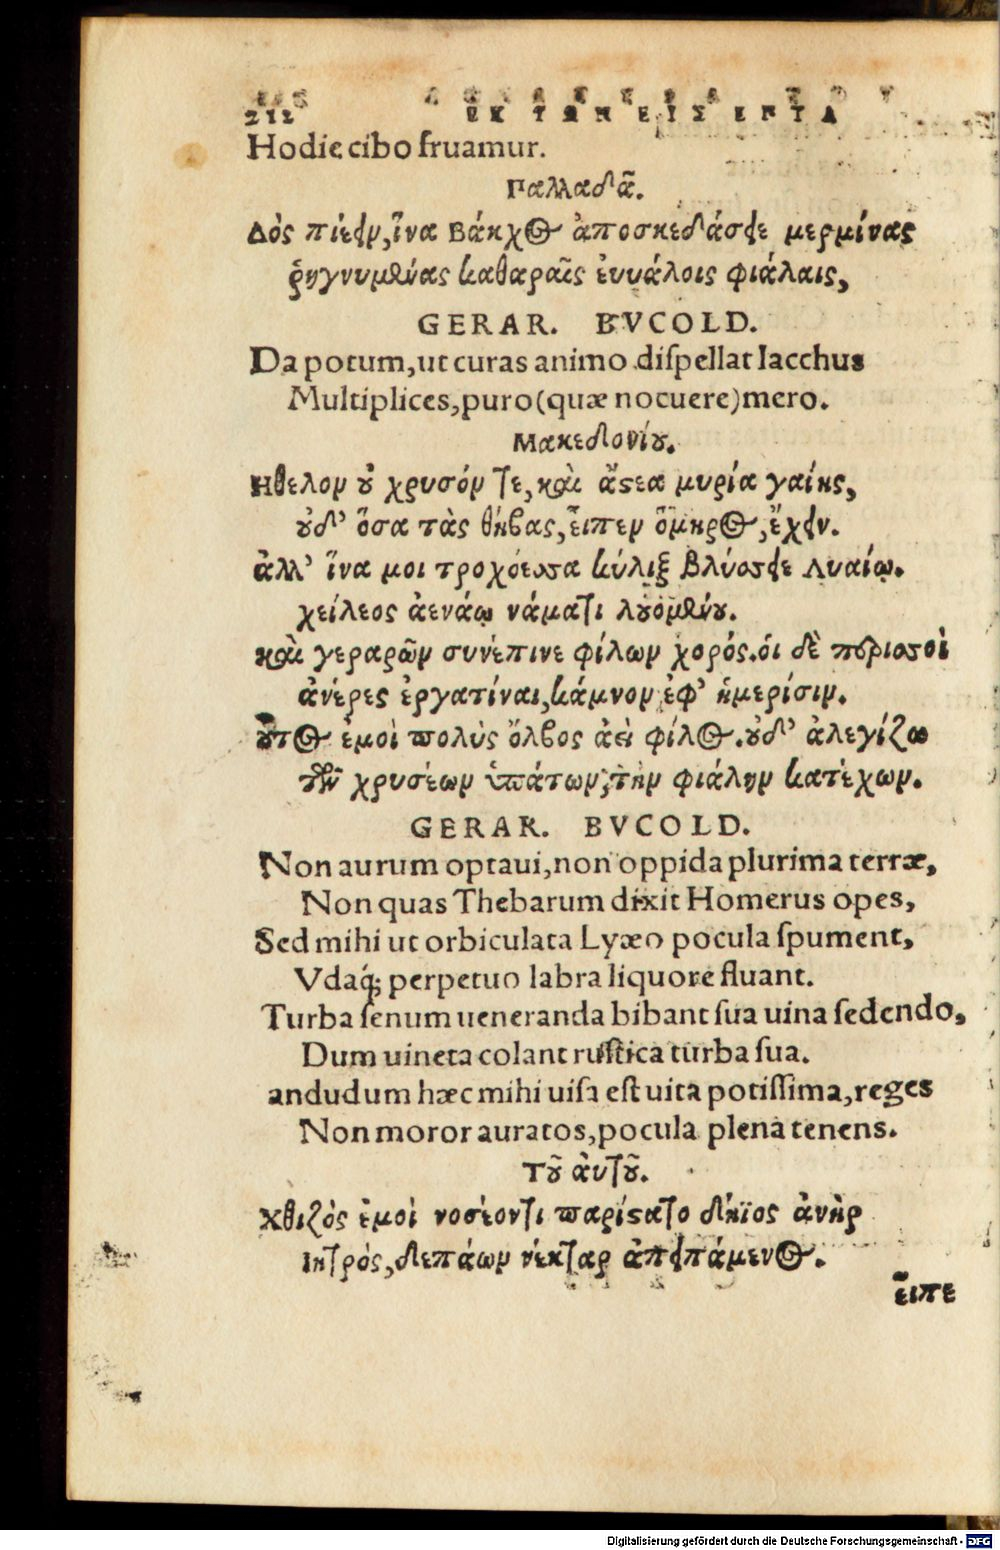 212 ΕΚ ΤΩΝ ΕΙΣ ΕΠΤΑ
Hodie cibo fruamur.
Παλλαδᾶ.
Δὸς πιέειν, ἵνα Βάκχος ἀποσκεδάσειε μερμίνας
ῥηγνυμένας καθαραῖς ἐυυάλοις φιάλαις,
GERAR. BVCOLD.
Da potum, ut curas animo diſpellat Iacchus
Multiplices, puro (quæ nocuere) mero.
Μακεδονίου.
Ηθελον οὐ χρυσόν τε, καὶ ἄστεα μυρία γαίης,
οὐδ’ ὅσα τὰς θήβας, εἶπεν ὅμηρος, ἔχειν.
ἀλλ’ ἵνα μοι τροχόεσσα κύλιξ βλύσσειε Λυαίῳ.
χείλεος ἀενάῳ νάματι λυομένου.
καὶ γεραρῶν συνέπινε φίλων χορός. οἱ δὲ περισσοὶ
ἀνέρες ἐργατίναι, κάμνον ἐφ’ ἡμερίσιν.
οὗτος ἐμοὶ πολὺς ὄλβος ἀεὶ φίλος. οὐδ’ ἀλεγίζω
τῶν χρυσέων ὑπάτων, τὴν φιάλην κατέχων.
GERAR. BVCOLD.
Non aurum optaui, non oppida plurima terræ,
Non quas Thebarum dixit Homerus opes,
Sed mihi ut orbiculata Lyæo pocula ſpument,
Vdaq́; perpetuo labra liquore fluant.
Turba ſenum ueneranda bibant ſua uina ſedendo,
Dum uineta colant ruſtica turba ſua.
andudum hæc mihi uiſa eſt uita potiſſima, reges
Non moror auratos, pocula plena tenens.
Τοῦ ἀυτοῦ.
Χθιζὸς ἐμοὶ νοσέοντι παρίστατο δήϊος ἀνὴρ
Ιητρός, δεπάων νέκταρ ἀπειπάμενος.
εἶπε
Digitalisierung gefördert durch die Deutsche Forschungsgemeinschaft - DFG